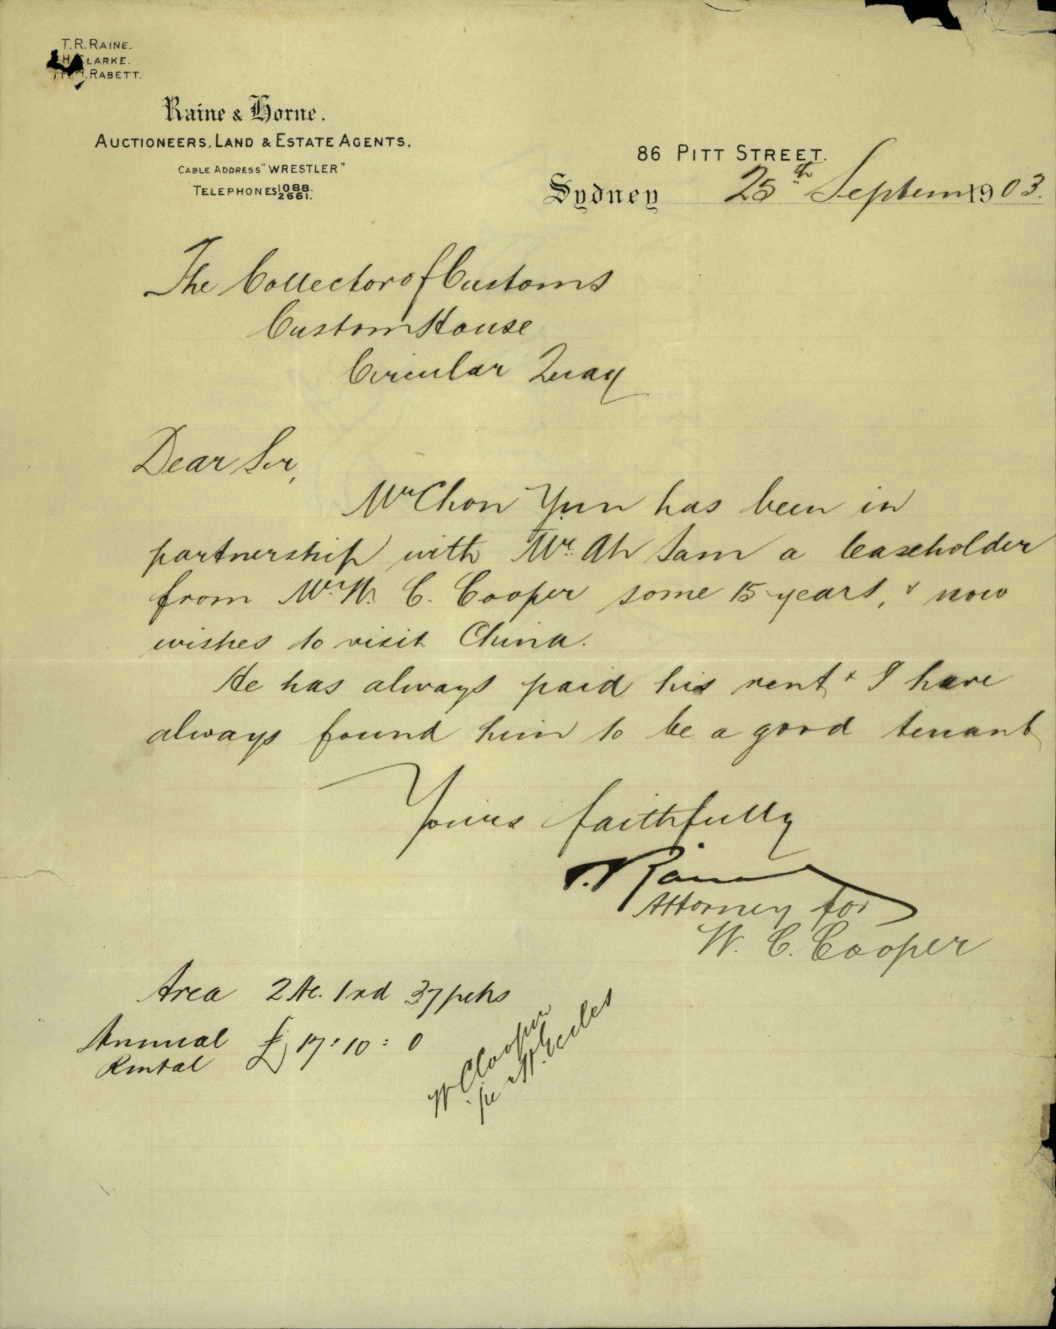 T. R. RAINE.
CLARKE.
RABETT.
Raine & Horne.
AUCTIONEERS, LAND & ESTATE AGENTS.
CABLE ADDRESS "WRESTLER"
TELEPHONES 1088.
2661.
86 PITT STREET.
Sydney 25th Septem 1903.
The Collector of Customs
Custom House
Circular Quay
Dear Sir,
Mr Chon Yun has been in
partnership with Mr. Ah Sam a leaseholder
from Mr W. C. Cooper some 15 years, & now
wishes to visit China.
He has always paid his rent & I have
always found him to be a good tenant
Yours faithfully
T. Raine
Attorney for
W. C. Cooper
Area 2 Ac. 1 rd 37 pchs
Annual £17 : 10 : 0
Rental
W C Cooper
per